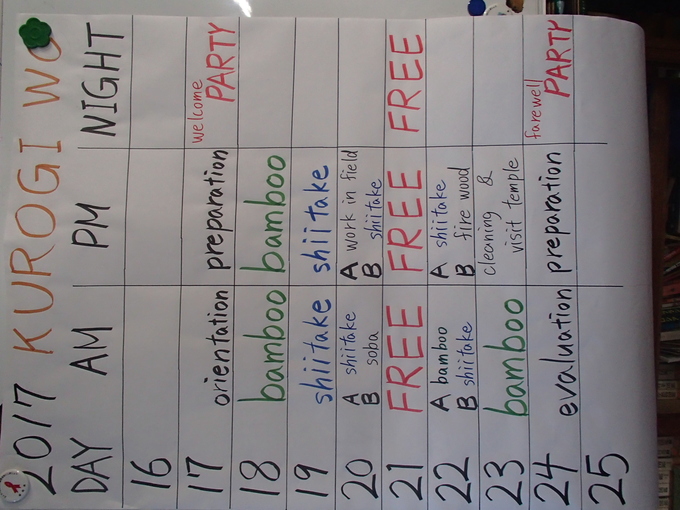 2017 KUROGI WO
DAY AM PM NIGHT
16
17 orientation preparation welcome PARTY
18 bamboo bamboo
19 shiitake shiitake
20 A shiitake A work in field
B soba B shiitake
21 FREE FREE FREE
22 A bamboo A shiitake
B shiitake B fire wood
23 bamboo cleaning &
visit temple
24 evaluation preparation farewell PARTY
25